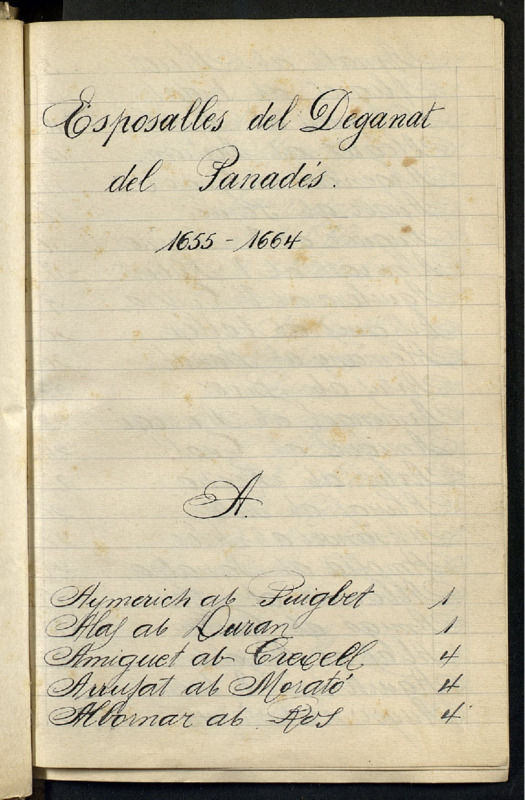 Esposalles del Deganat
del Panadés.
1655 - 1664
A.
Aymerich ab Puigbet 1
Alaf ab Duran 1
Amiguet ab Crexell 4
Arrufat ab Morató 4
Albornar ab Ros 4